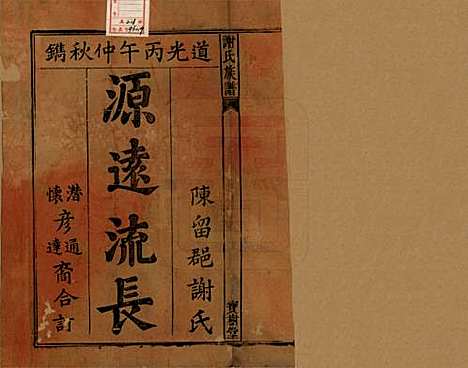 道光丙午仲秋鐫
陳留郡謝氏
源遠流長
潛通
懷達
彦裔合訂
謝氏族譜
寶樹堂